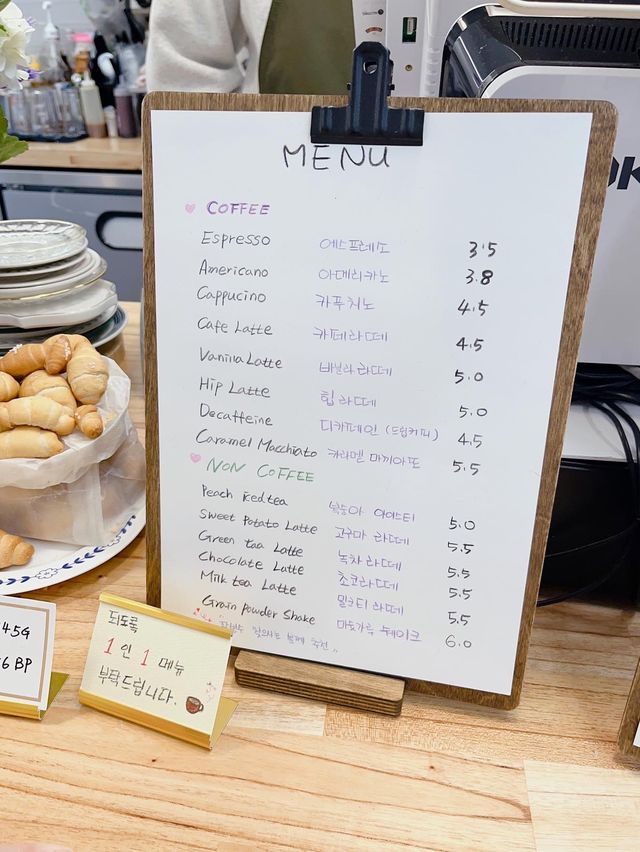 MENU
COFFEE
Espresso 에스프레소 3.5
Americano 아메리카노 3.8
Cappucino 카푸치노 4.5
Cafe Latte 카페라떼 4.5
Vanilla Latte 바닐라라떼 5.0
Hip Latte 힙라떼 5.0
Decaffeine 디카페인 (드립커피) 4.5
Caramel Macchiato 카라멜 마끼아또 5.5
NON COFFEE
Peach icedtea 복숭아 아이스티 5.0
Sweet Potato Latte 고구마 라떼 5.5
Green tea Latte 녹차라떼 5.5
Chocolate Latte 초코라떼 5.5
Milk tea Latte 밀크티 라떼 5.5
Grain powder Shake 미숫가루 쉐이크 6.0
되도록
1인 1메뉴
부탁드립니다.
45G
6 BP
OK